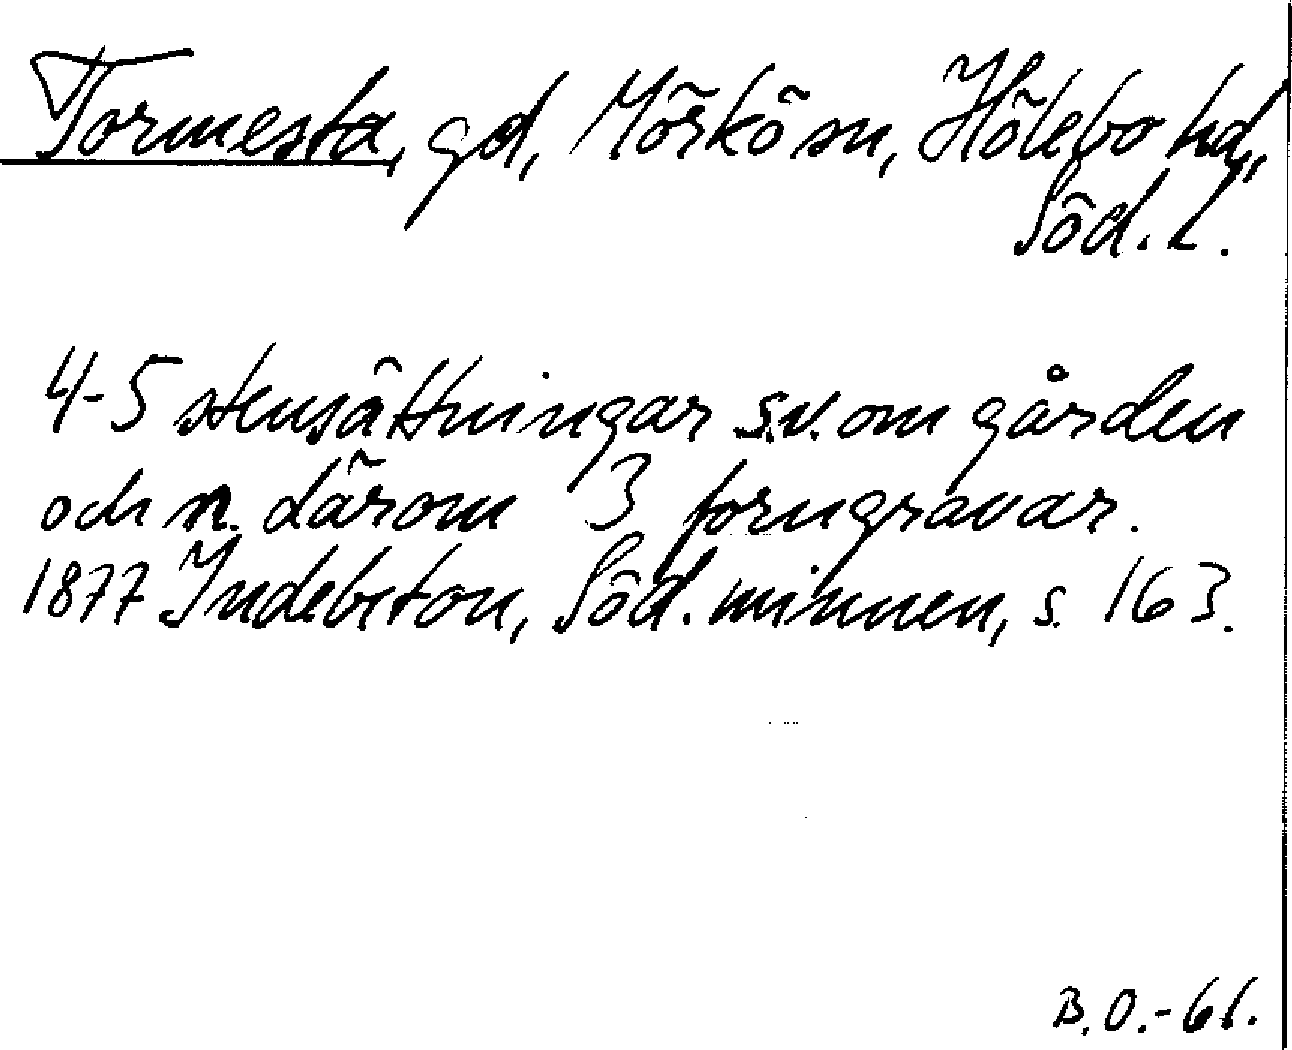 Tormesta, gd, Mörkö sn, Hölebo hd,
Söd. L.
4-5 stensättningar s.v. om gården
och n. därom 3 forngravar.
1877 Indebetou, Söd. minnen, s. 163.
B.O.-61.